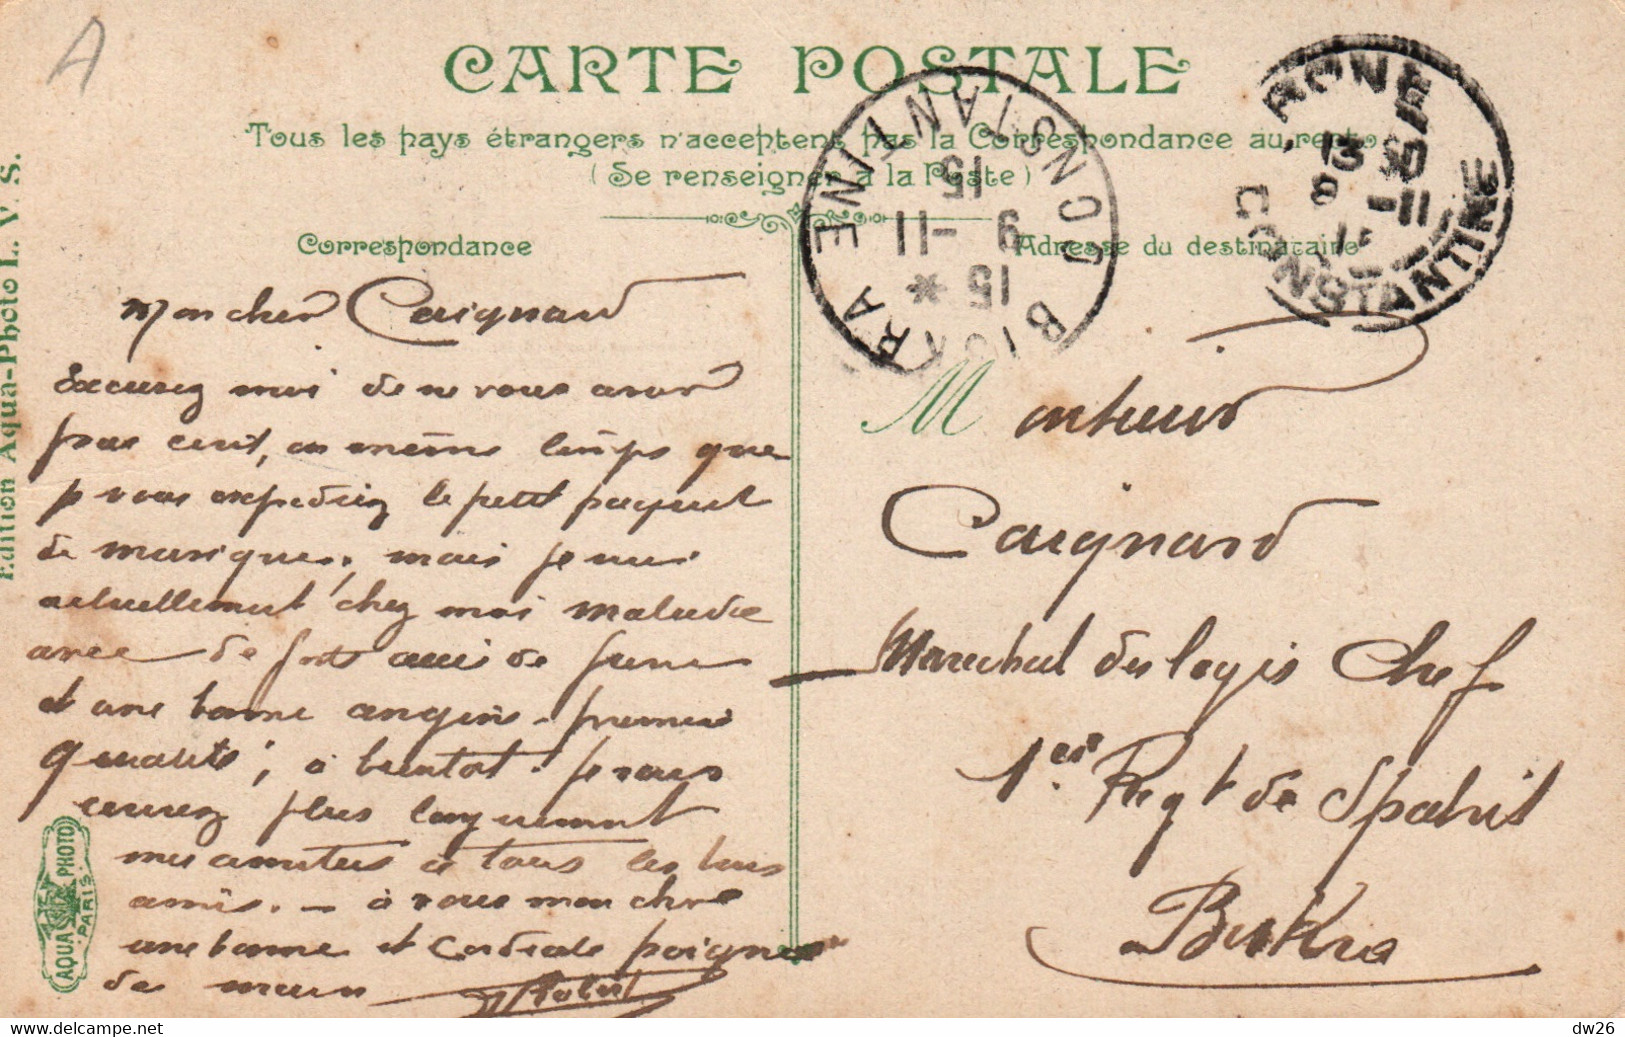 A
CARTE POSTALE
Tous les pays étrangers n'acceptent pas la Correspondance au recto
(Se renseigner à la Poste)
Correspondance
Adresse du destinataire
BISKRA
CONSTANTINE
15
9 -11
15 *
BONE
CONSTANTINE
13
8 -11
Mon cher Caignard
Excusez moi de ne vous avoir
pas écrit, en même temps que
je vous expédiez le petit paquet
de musique, mais je suis
actuellement chez moi malade
avec de forts accès de fièvre
et une bonne angine première
qualité; à bientôt. je vous
écrirez plus longuement
mes amitiés à tous les bons
amis. — à vous mon cher
une bonne et cordiale poignée
de main
Robert
Monsieur
Caignard
Marechal des logis Chef
1er Regt de Spahis
Biskra
Edition Aqua-Photo L. V. S.
AQUA PHOTO
PARIS
dw26
delcampe.net